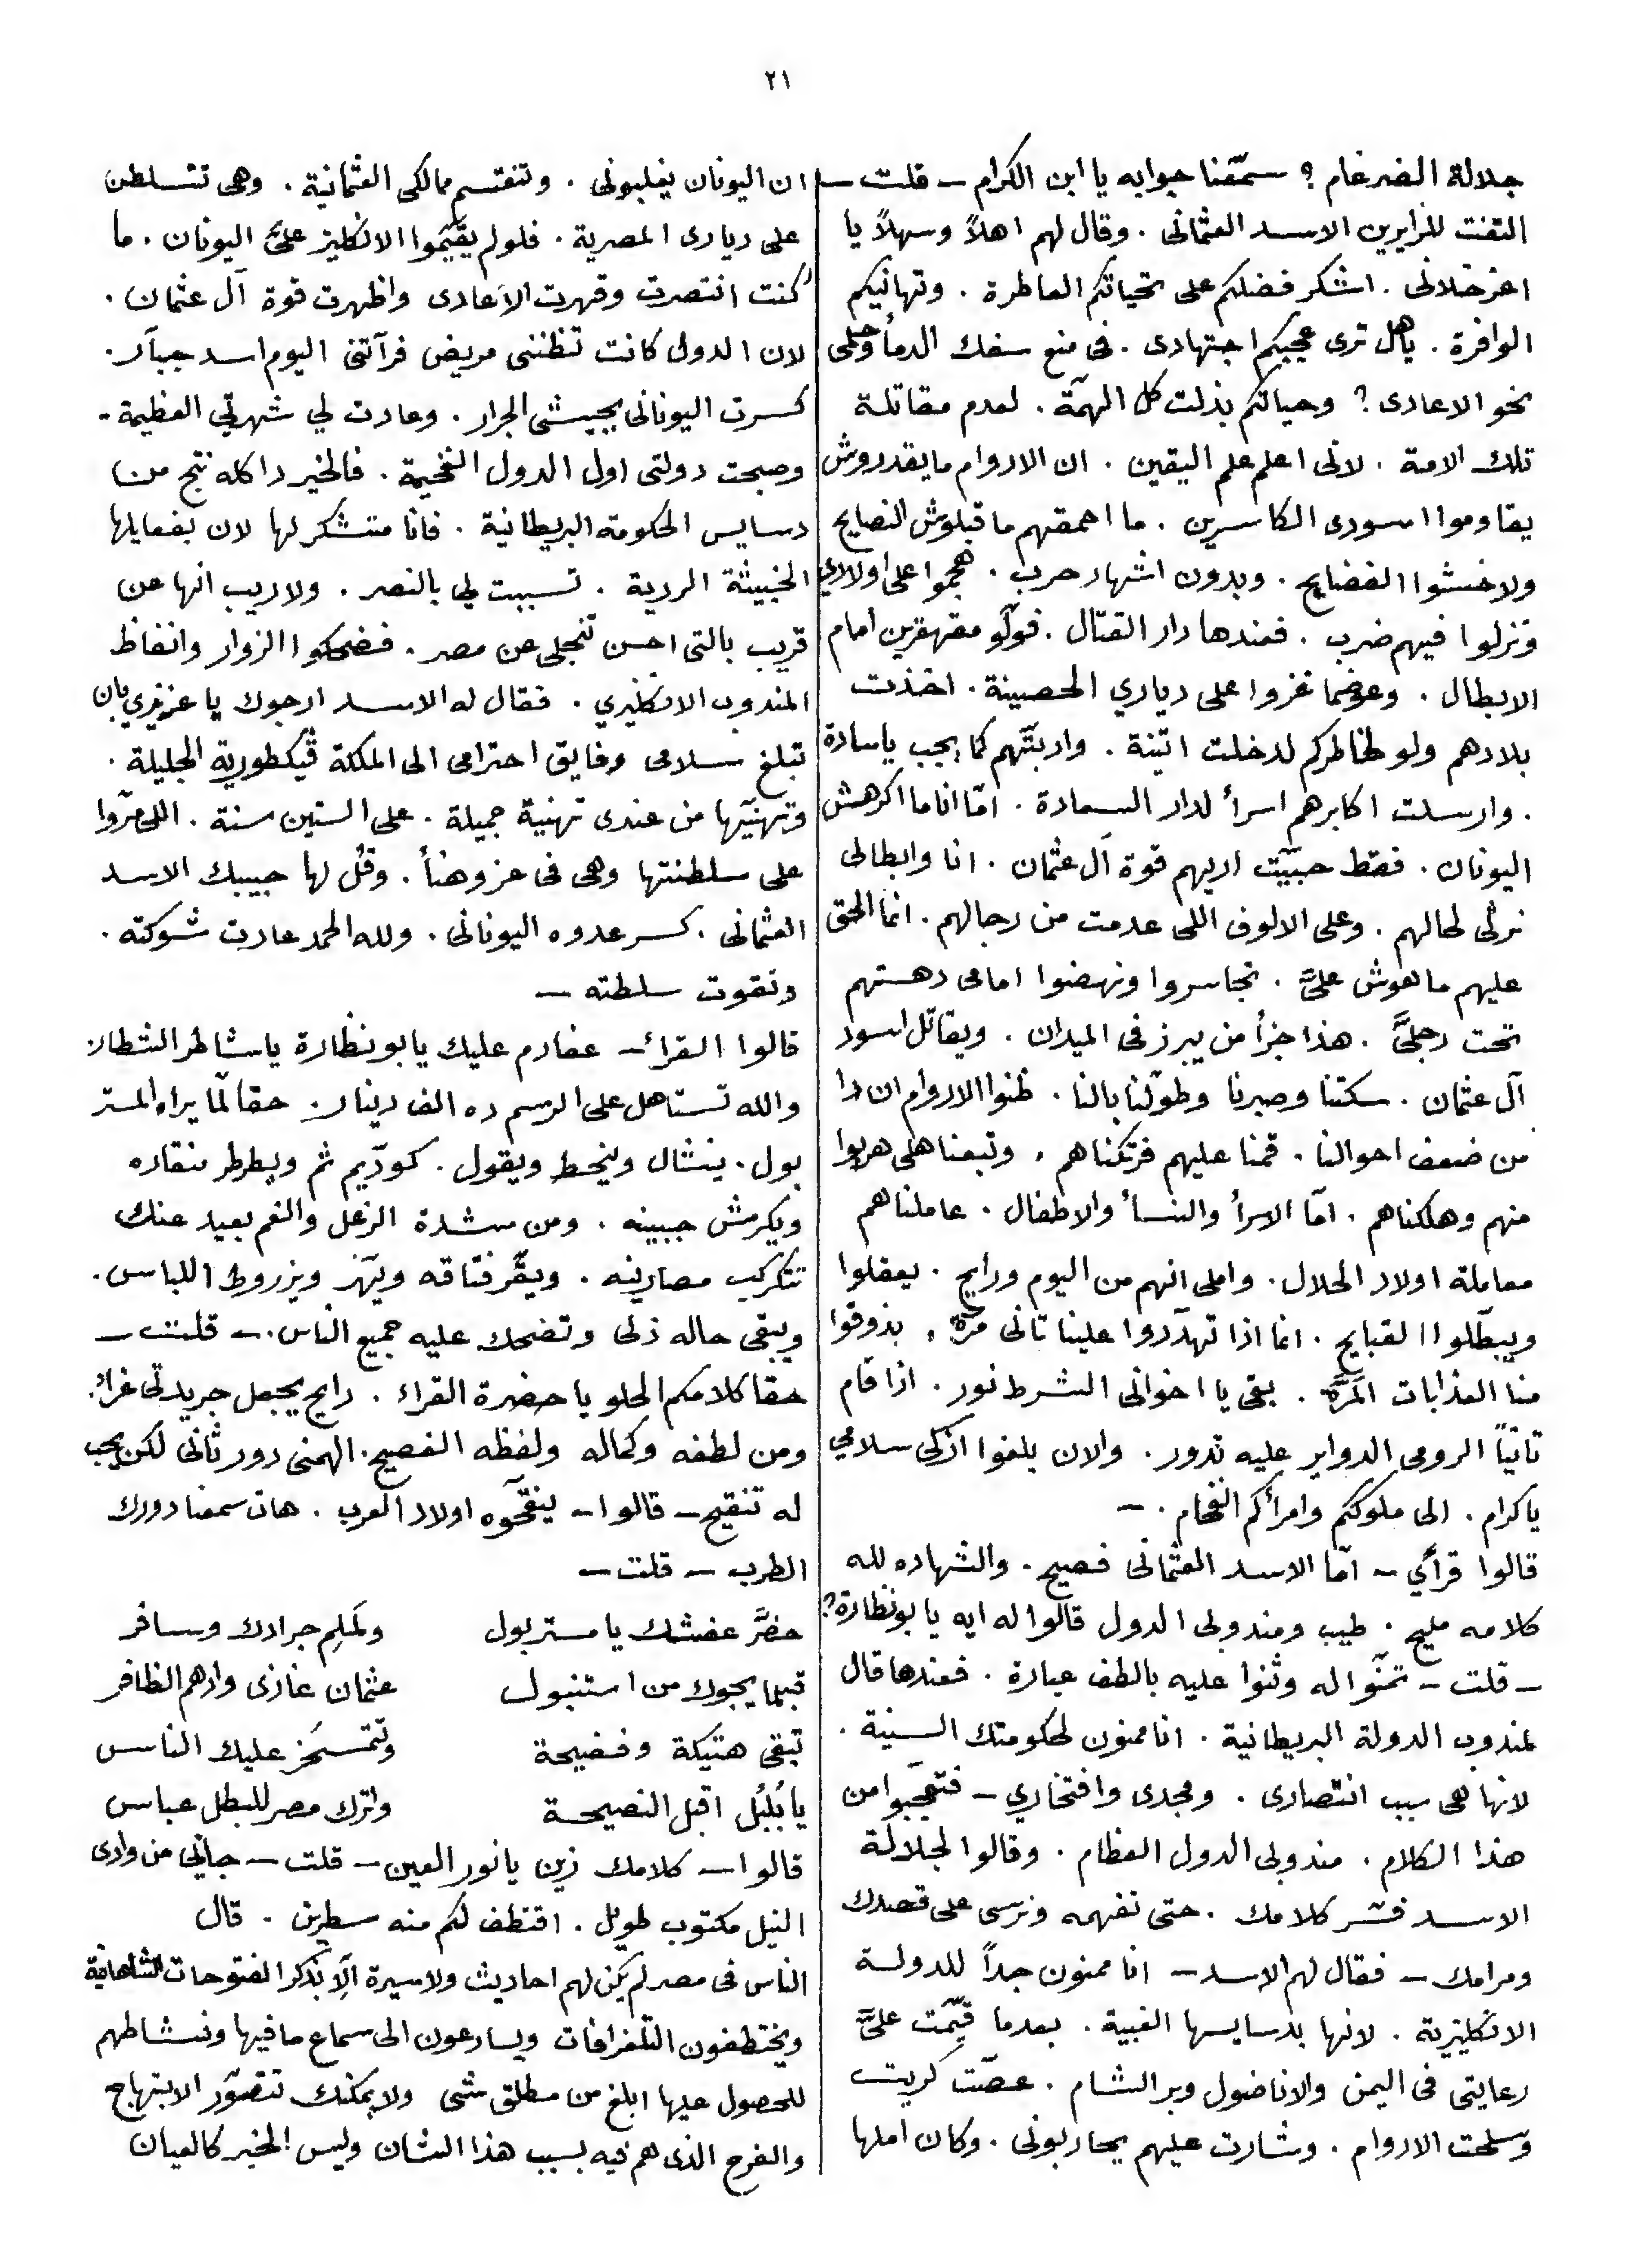 ٢١
جلالة الضرغام ؟ سمّعنا جوابه يا ابن الكرام – قلت –
التفت للزايرين الاسد العثمانى . وقال لهم اهلاً وسهلاً يا
اعز خلانى . اشكر فضلكم على تحياتكم العاطرة . وتهانيكم
الوافرة . ياهل ترى عجبكم اجتهادى . فى منع سفك الدمأ وحلمى
نحو الاعادى ؟ وحياتكم بذلت كل الهمّة . لعدم مقاتلة
تلك الامة . لانى اعلم علم اليقين . ان الاروام مايقدروش
يقاوموا اسودى الكاسرين . ما احمقهم ما قبلوش النصايح
ولا خشوا الفضايح . وبدون اشهار حرب . هجموا على اولادي
ونزلوا فيهم ضرب . فعندها دار القتال . فولّو مقهقرين امام
الابطال . وعوضما غزوا على دياري الحصينة . اخذت
بلادهم ولو لخاطركم لدخلت اتينة . وادبتّهم كما يجب ياسادة
. وارسلت اكابرهم اسرأ لدار السعادة . امّا انا ما اكرهش
اليونان . فقط حبيّت اريهم قوة آل عثمان . انا وابطالى
نرثى لحالهم . وعلى الالوف اللى عدمت من رجالهم . انما الحق
عليهم ماهوش علىَّ . تجاسروا ونهضوا امامى دهستهم
تحت رجلىَّ . هذا جزأ من يبرز فى الميدان . ويقاتل اسود
آل عثمان . سكتنا وصبرنا وطوّلنا بالنا . ظنوا الاروام ان دا
من ضعف احوالنا . قمنا عليهم فرتكناهم . وتبعنا هلى هربوا
منهم وهلكناهم . امّا الاسرأ والنسأ والاطفال . عاملناهم
معاملة اولاد الحلال . واملى انهم من اليوم ورايح . يعقلوا
ويبطّلوا القبايح . انما اذا تهدّروا علينا تانى مرّة . بذوقوا
منا العذابات المَرَّة . بقى يا اخوانى الشرط نور . اذا قام
تانياً الرومى الدواير عليه تدور . والان بلغوا ازكى سلامي
ياكرام . الى ملوككم وامرأكم الفخام . –
قالوا قرأي – امّا الاسد العثمانى فصيح . والشهاده لله
كلامه مليح . طيب ومندوبى الدول قالوا له ايه يا بو نظارة ؟
– قلت – تمنّوا له وثنوا عليه بالطف عبارة . فعندها قال
لمندوب الدولة البريطانية . انا ممنون لحكومتك السنية .
لانها هى سبب انتصارى . ومجدى وافتخاري – فتعجّبوا من
هذا الكلام . مندوبى الدول العظام . وقالوا لجلالة
الاسد فسّر كلامك . حتى نفهمه ونرسى على قصدك
ومرامك – فقال لهم الاسد – انا ممنون جداً للدولة
الانكليزية . لانها بدسايسها الغبية . بعدما قيّمت علىَّ
رعايتى فى اليمن والاناضول وبر الشام . عصّت كريت
وسلحت الاروام . وشارت عليهم يحاربونى . وكان املها
ان اليونان يغلبونى . وتنقتسم ممالكى العثمانية . وهى تتسلطن
على ديارى المصرية . فلولم يقيّموا الانكليز علىَّ اليونان . ما
كنت انتصرت وقهرت الاعادى واظهرت قوة آل عثمان .
لان الدول كانت تظننى مريض فرآتنى اليوم اسد جبّار .
كسرت اليونانى بجيشى الجرار . وعادت لي شهرتي العظيمة –
وصبحت دولتى اول الدول الفخيمة . فالخير دا كله نتج من
دسايس الحكومة البريطانية . فانا متشكر لها لان بفعايلها
الخبيثة الردية . تسببت لي بالنصر . ولا ريب انها عن
قريب بالتى احسن تنجلى عن مصر . فضحكوا الزوار وانغاظ
المندوب الانكليزي . فقال له الاسد ارجوك يا عزيزي بان
تبلغ سلامى وفايق احترامى الى الملكة ڤيكطورية الجليلة .
وتهنيّها من عندى تهنية جميلة . على الستين سنة . اللى مرّوا
على سلطنتها وهى فى عز وهنأ . وقُل لها حبيبك الاسد
العثمانى . كسر عدوه اليونانى . ولله الحمد عادت شوكته .
وتقوت سلطته –
قالوا القرأ – عفارم عليك يا بونظارة ياشاطر الشطار
والله تستاهل على الرسم ده الف دينار . حقا لمّا يراه المستر
بول . ينشال وينحط ويقول . كودّيم ثم ويطرطر منقاره
ويكرمش جبينه . ومن شدة الزعل والغم بعيد عنك
تتكركب مصارينه . ويقّر فتاقه ويهّز ويزروط اللباس .
ويبقى حاله ذلى وتضحك عليه جميع الناس . – قلت –
حقا كلامكم الحلو يا حضرة القراء . رايح يجعل جريدتى غراء .
ومن لطفه وكماله ولفظه الفصيح . الهمنى دور ثانى لكن يجب
له تنقيح – قالوا – ينقحّوه اولاد العرب . هات سمعنا دورك
الطرب – قلت –
حضَّر عفشك يا مستر بول ولَملِم جرادك وسافر
قبلما يجوك من استنبول عثمان غازى وادهم الظافر
تبقى هتيكة وفضيحة وتتمسخَر عليك الناس
يا بُلبُل اقبل النصيحة واترك مصر للبطل عباس
قالوا – كلامك زين يا نور العين – قلت – جانى من وادى
النيل مكتوب طويل . اقتطف لكم منه سطرين . قال
الناس فى مصر لم يكن لهم احاديث ولا سيرة الّا بذكر الفتوحات الشاهانية
ويختطفون التلغرافات ويسارعون الى سماع ما فيها ونشاطهم
للحصول عليها ابلغ من مطلق شى ولا يمكنك تتصوّر الابتهاج
والفرح الذى هم فيه بسبب هذا الشان وليس الخبر كالعيان